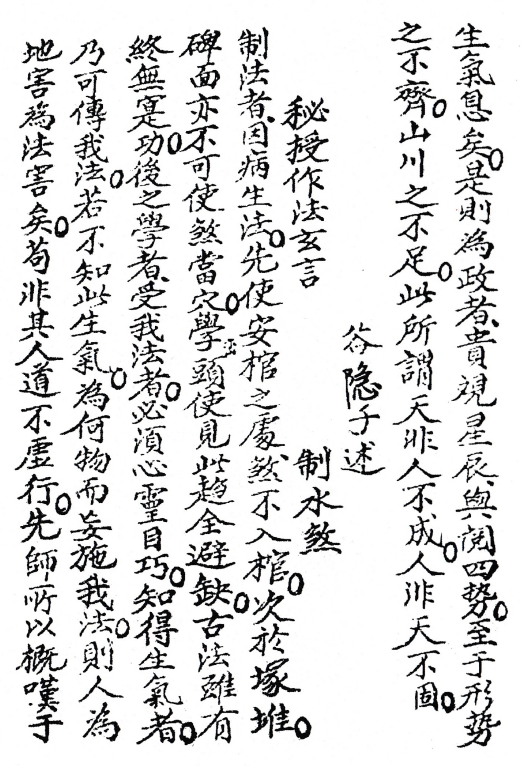 生氣息矣是則為政者貴視星辰與閱四勢至于形勢
之不齊山川之不足此所謂天非人不成人非天不固
谷隐子述
秘授作法玄言 制水煞
制法者因病生法先使安棺之處煞不入棺次於塚堆
碑面亦不可使煞當穴學頭使見此趋全避缺古法雖有
終無寔功後之學者受我法者必須心靈目巧知得生氣者
乃可傳我法若不知此生氣為何物而妄施我法則人為
地害為法害矣苟非其人道不虛行先師所以概嘆于